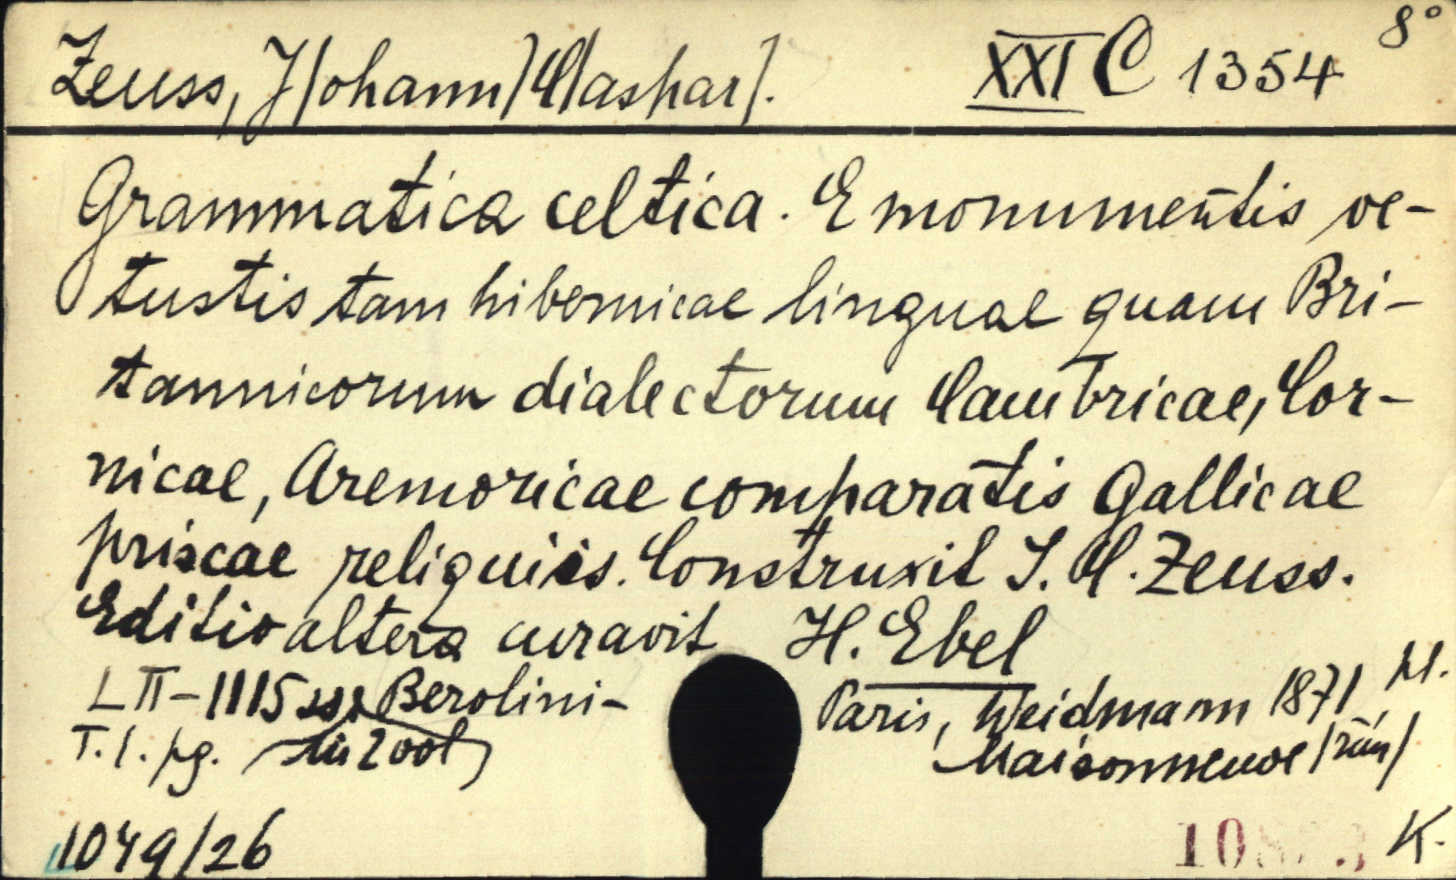 8°
Zeuss, J/ohann/ C/aspar/. XXI C 1354
Grammatica celtica. E monumentis ve-
tustis tam hibernicae linguae quam Bri-
tannicorum dialectorum Cambricae, Cor-
nicae, Aremoricae comparatis Gallicae
priscae reliquiis. Construxit I. C. Zeuss.
Editio altera curavit H. Ebel
LII-1115 ss. Berolini- Paris, Weidmann 1871,
T. 1. pg. Maisonneuve
1049/26 K.